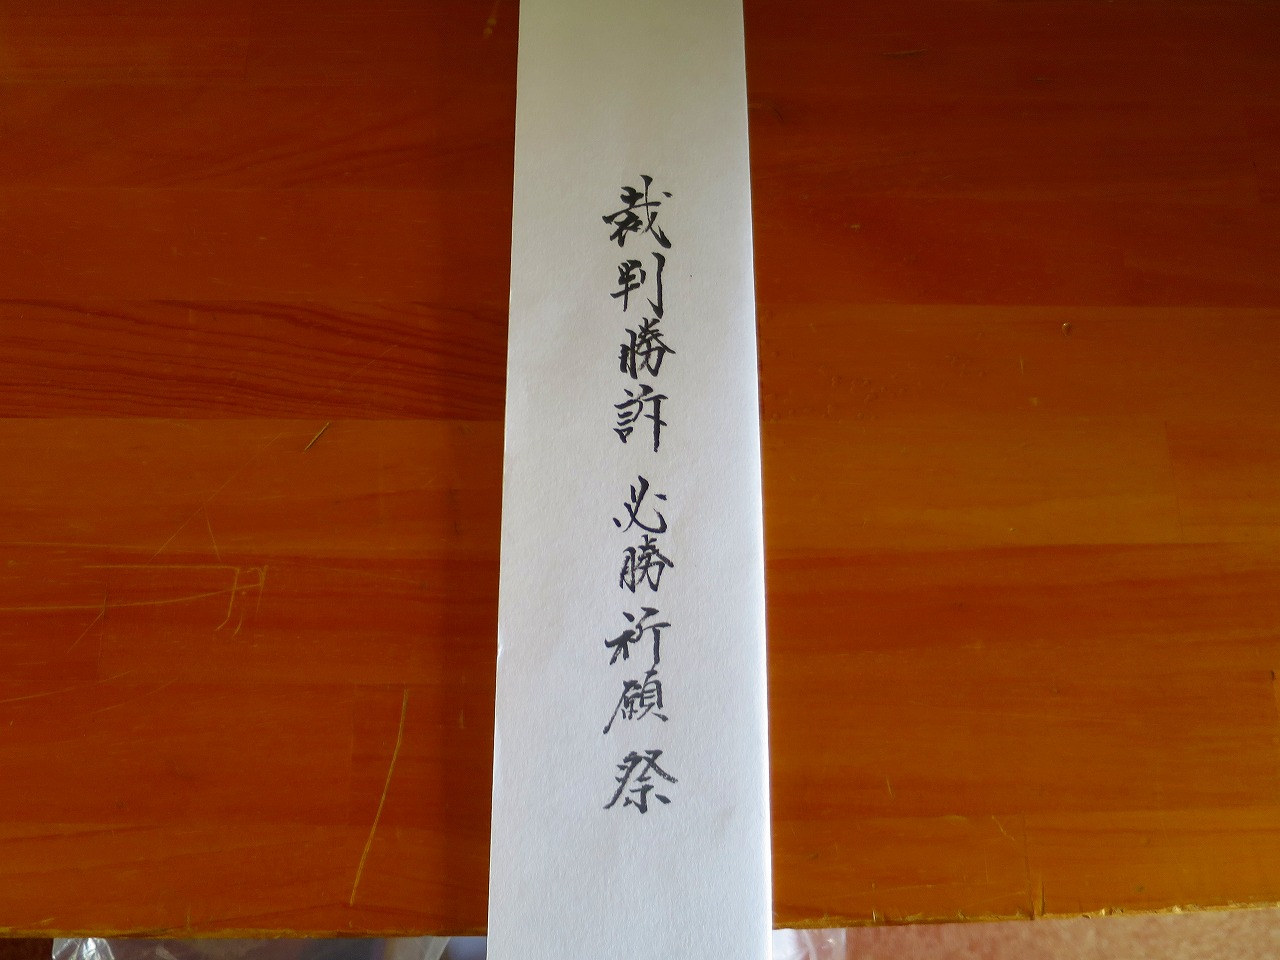 裁判勝訴 必勝祈願 祭